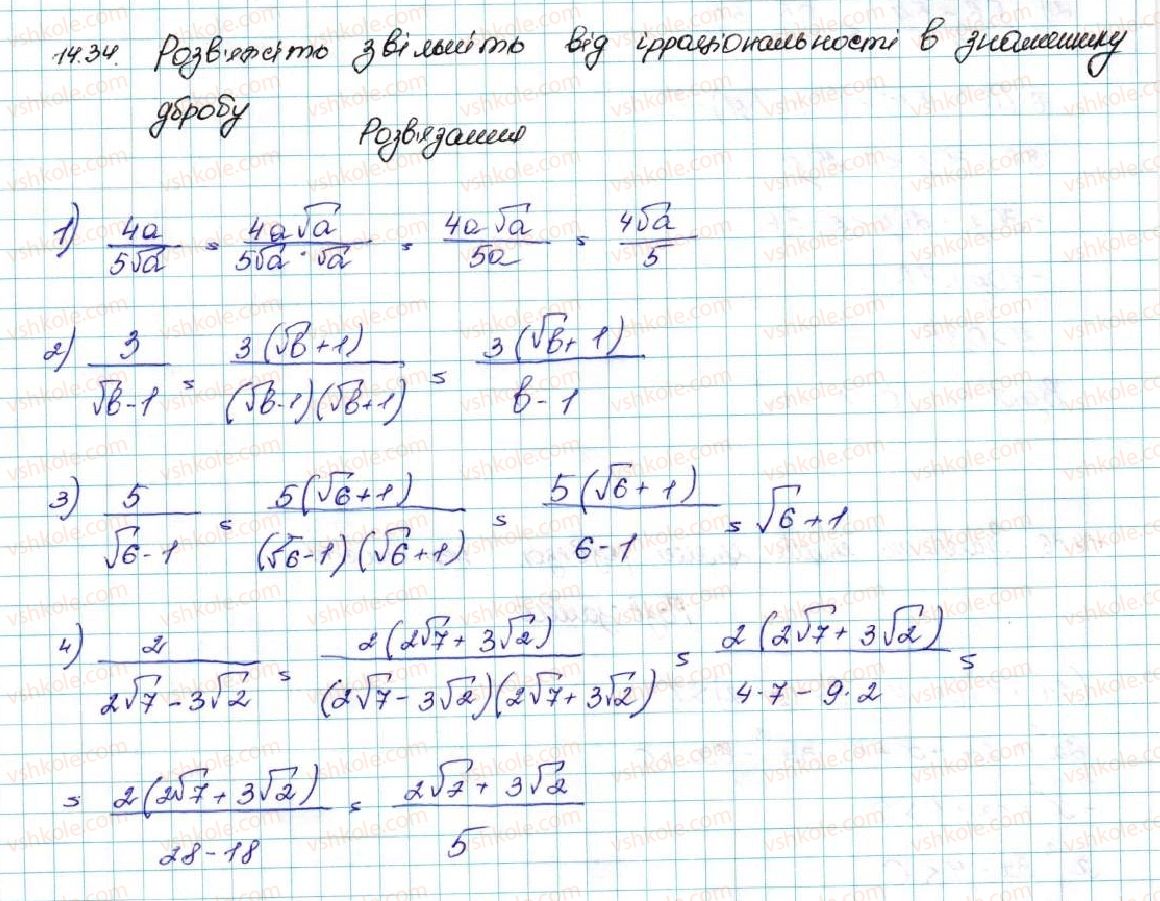 14.34. Розв'яжіть звільніть від ірраціональності в знаменнику
дбробу
Розв'язання
1) 4a/(5√a) = 4a√a/(5√a · √a) = 4a√a/(5a) = 4√a/5
2) 3/(√b-1) = 3(√b+1)/((√b-1)(√b+1)) = 3(√b+1)/(b-1)
3) 5/(√6-1) = 5(√6+1)/((√6-1)(√6+1)) = 5(√6+1)/(6-1) = √6+1
4) 2/(2√7-3√2) = 2(2√7+3√2)/((2√7-3√2)(2√7+3√2)) = 2(2√7+3√2)/(4·7-9·2) =
= 2(2√7+3√2)/(28-18) = (2√7+3√2)/5
vshkole.com